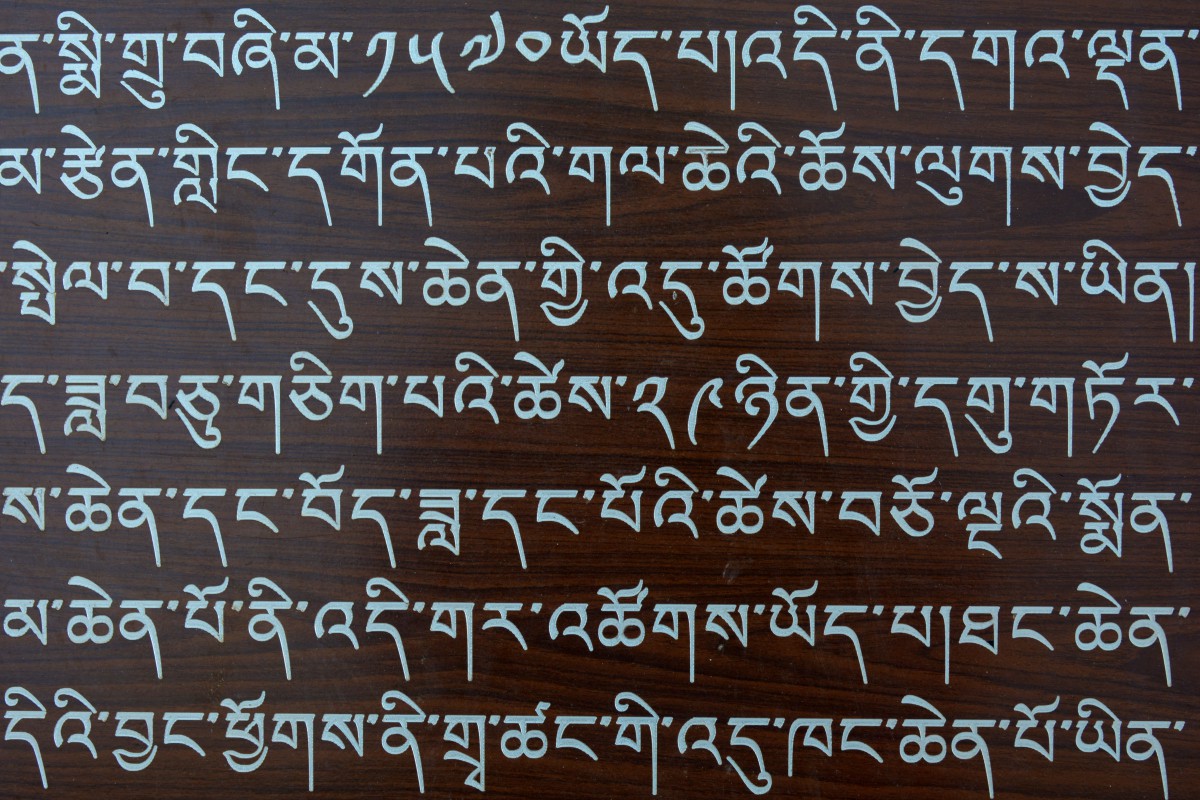 ན་སྨྲེ་གྲུ་བཞི་མ་༡༥༧༠ཡོད་པ།འདི་ནི་དགའ་ལྡན་
མ་ཅེན་གླིང་དགོན་པའི་གལ་ཆེའི་ཆོས་ལུགས་བྱེད་
སྤྲེལ་བ་དང་དུས་ཆེན་གྱི་འདུ་ཚོགས་བྱེད་ས་ཡིན།
ད་ཟླ་བཅུ་གཅིག་པའི་ཚེས་༢༩ཉིན་གྱི་དགུ་གཏོར་
ས་ཆེན་དང་བོད་ཟླ་དང་པོའི་ཚེས་བཅོ་ལྔའི་སྨོན་
མ་ཆེན་པོ་ནི་འདི་གར་འཚོགས་ཡོད་པ།ཐང་ཆེན་
དེའི་བྱང་ཕྱོགས་ནི་གྲྭ་ཚང་གི་འདུ་ཁང་ཆེན་པོ་ཡིན་